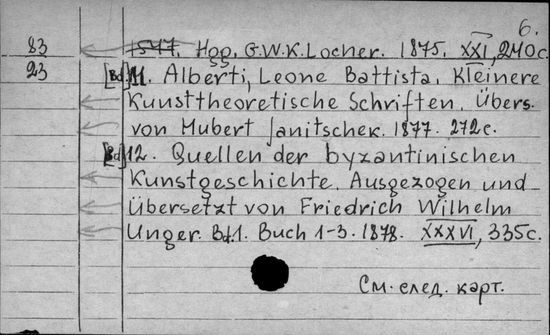 6.
83 1547. Hgg. G.W.K. Locner. 1875. XXI, 240c.
23 [Bd] 11. Alberti, Leone Battista. Kleinere
Kunsttheoretische Schriften. Übers.
von Hubert Janitschek. 1877. 272c.
[Bd] 12. Quellen der byzantinischen
Kunstgeschichte. Ausgezogen und
übersetzt von Friedrich Wilhelm
Unger. Bd. 1. Buch 1-3. 1878. XXXVI, 335c.
См. след. карт.